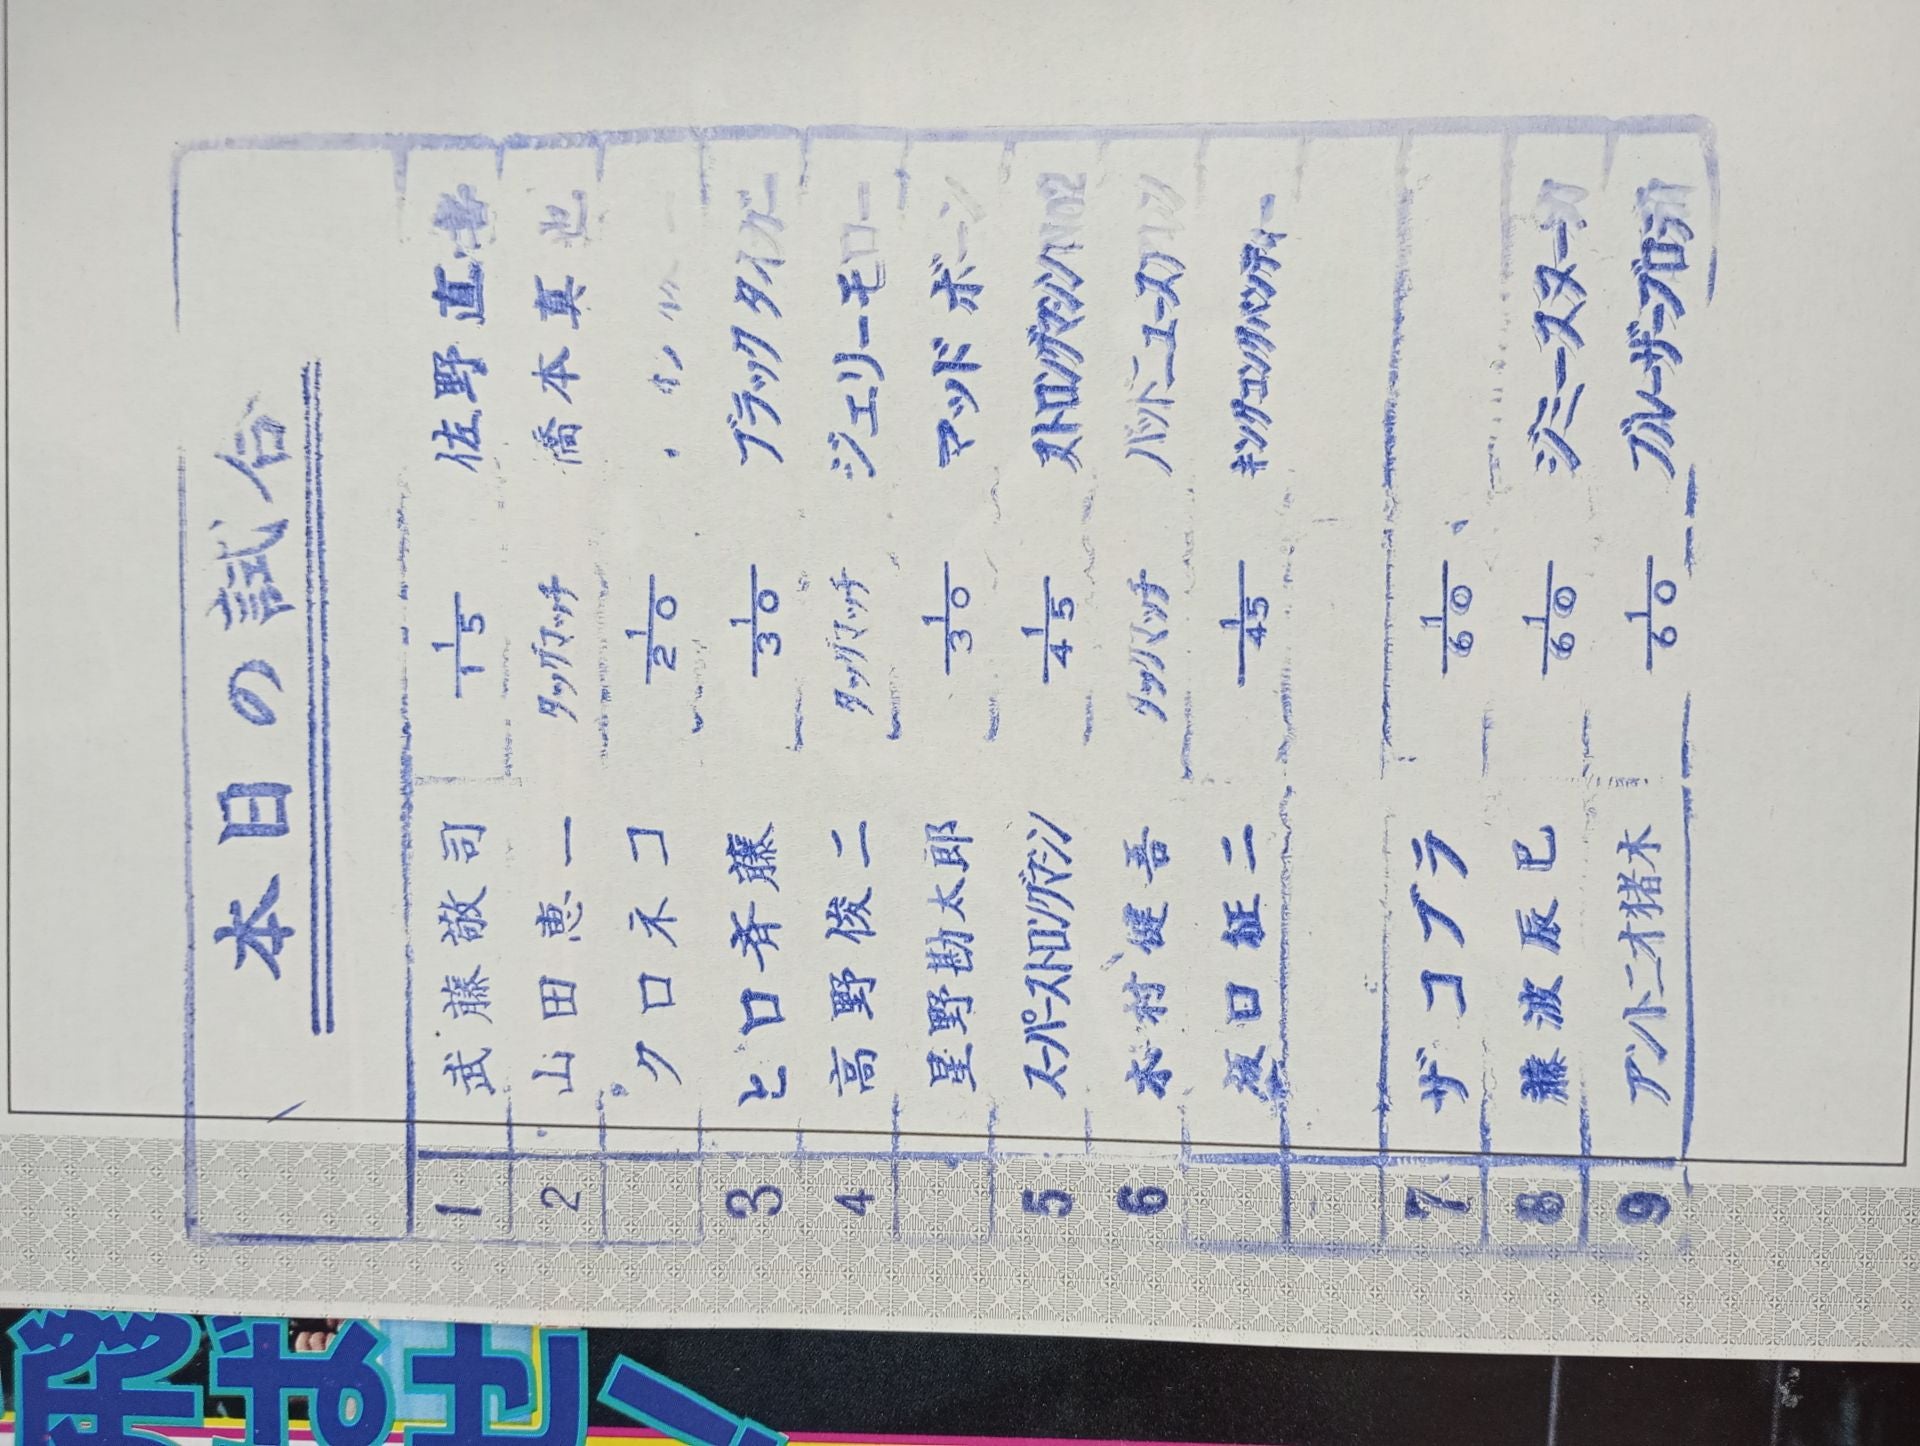 本日の試合
1 武藤敬司 15/1 佐野直喜
2 山田恵一 タッグマッチ 橋本真也
クロネコ 20/1
3 ヒロ斉藤 30/1 ブラックタイガー
4 高野俊二 タッグマッチ ジェリーモロー
星野勘太郎 30/1 マッドボーン
5 スーパーストロングマシン 45/1 ストロングマシンNO2
6 木村健吾 タッグマッチ バッドニュースアレン
坂口征二 45/1 キングコングバンディー
7 ザコブラ 60/1
8 藤波辰巳 60/1 ジミースヌーカ
9 アントニオ猪木 60/1 ブルーザーブロディ
飛ばせ!